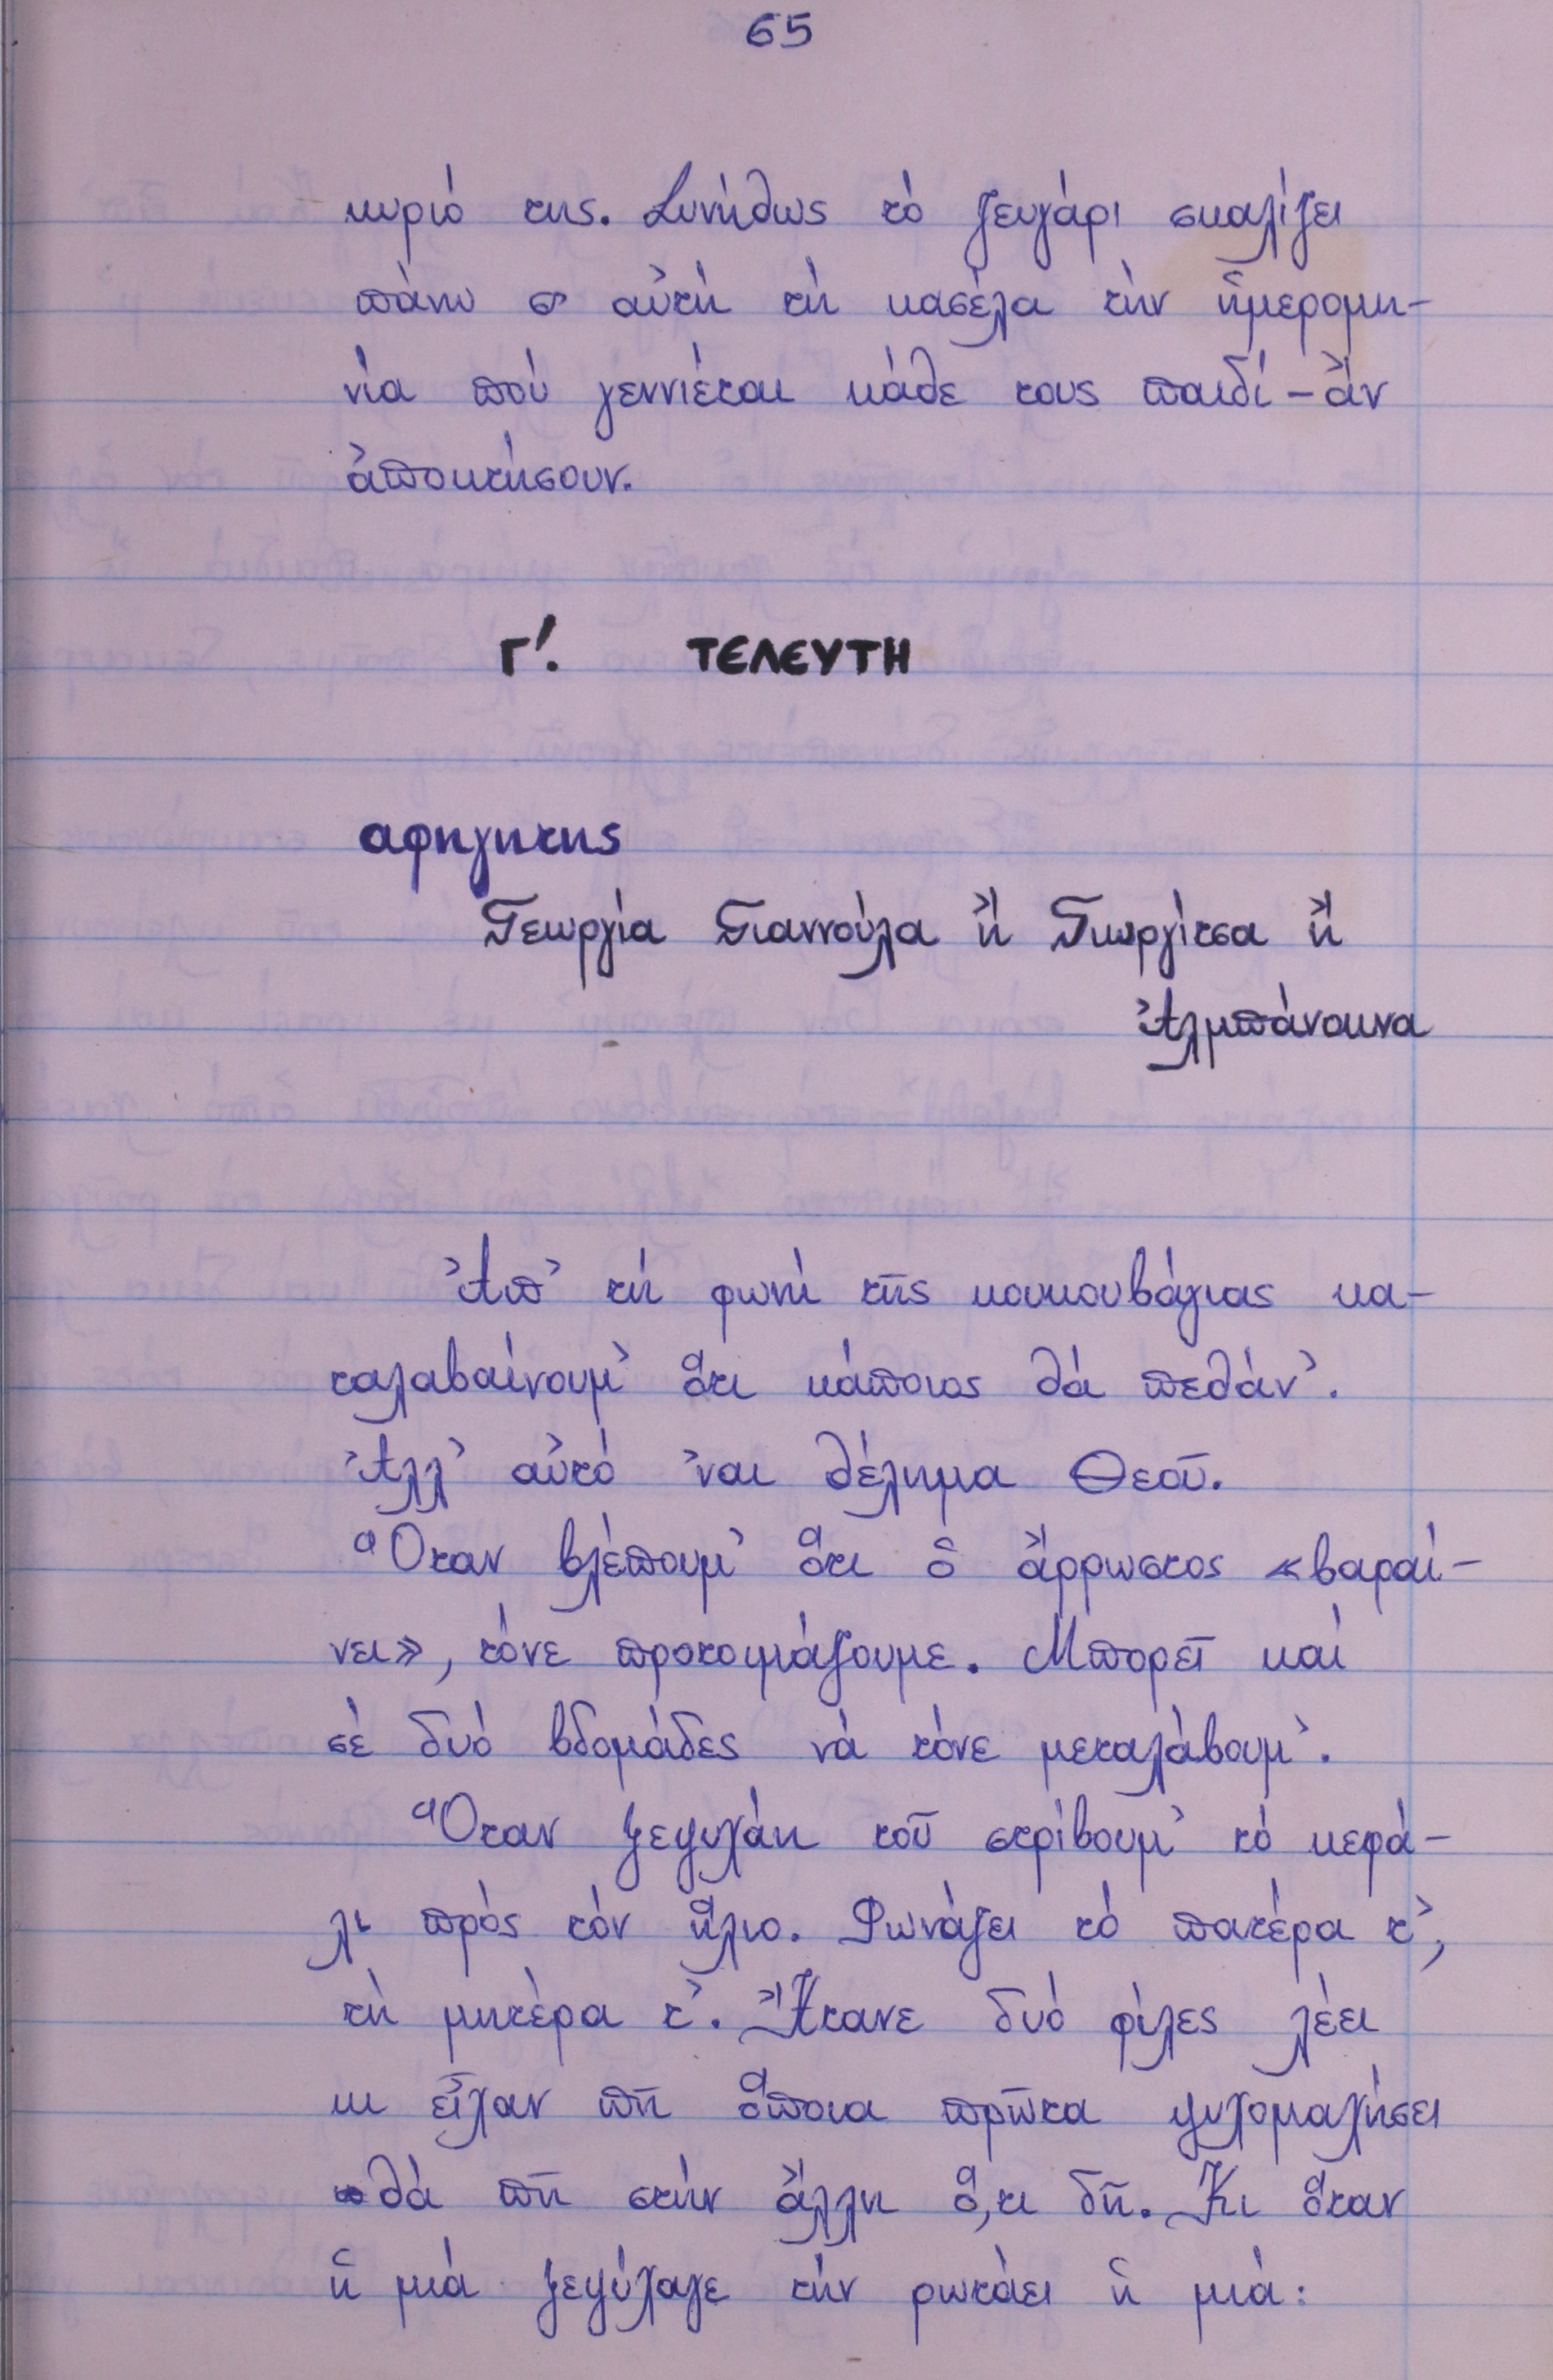 65
κυριό της. Συνήθως τό ζευγάρι σκαλίζει
πάνω σ' αὐτή τή κασέλα τήν ἡμερομη-
νία πού γεννιέται κάθε τους παιδί – ἄν
ἀποκτήσουν.
Γ'. ΤΕΛΕΥΤΗ
αφηγητης
Γεωργία Γιαννούλα ἤ Γιωργίτσα ἤ
Ἀλμπάναινα
Ἀπ' τή φωνή τῆς κουκουβάγιας κα-
ταλαβαίνουμ' ὅτι κάποιος θά πεθάν'.
Ἀλλ' αὐτό 'ναι θέλημα Θεοῦ.
Ὅταν βλέπουμ' ὅτι ὁ ἄρρωστος «βαραί-
νει», τόνε προτοιμάζουμε. Μπορεῖ καί
σέ δυό βδομάδες νά τόνε μεταλάβουμ'.
Ὅταν ξεψυχάει τοῦ στρίβουμ' τό κεφά-
λι πρός τόν ἥλιο. Φωνάζει τό πατέρα τ',
τή μητέρα τ'. Ἤτανε δυό φίλες λέει
κι εἶχαν πῆ ὅποια πρῶτα ψυχομαχήσει
θά πῆ στήν ἄλλη ὅ,τι δῆ. Κι ὅταν
ἡ μιά ξεψύχαγε τήν ρωτάει ἡ μιά: